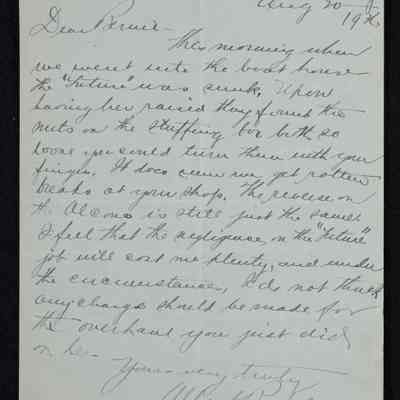 Aug 20
1926
Dear Bernie -
This morning when
we went into the boat house
the "Future" was sunk. Upon
having her raised they found the
nuts on the stuffing box both so
loose you could turn them with your
finger. It does seem we get rotten
breaks at your shop. The reverse on
the is still just the same.
I feel that the negligence on the "Future"
job will cost me plenty, and under
the circumstances, I do not think
any charge should be made for
the overhaul you just did
on her.
Yours very truly